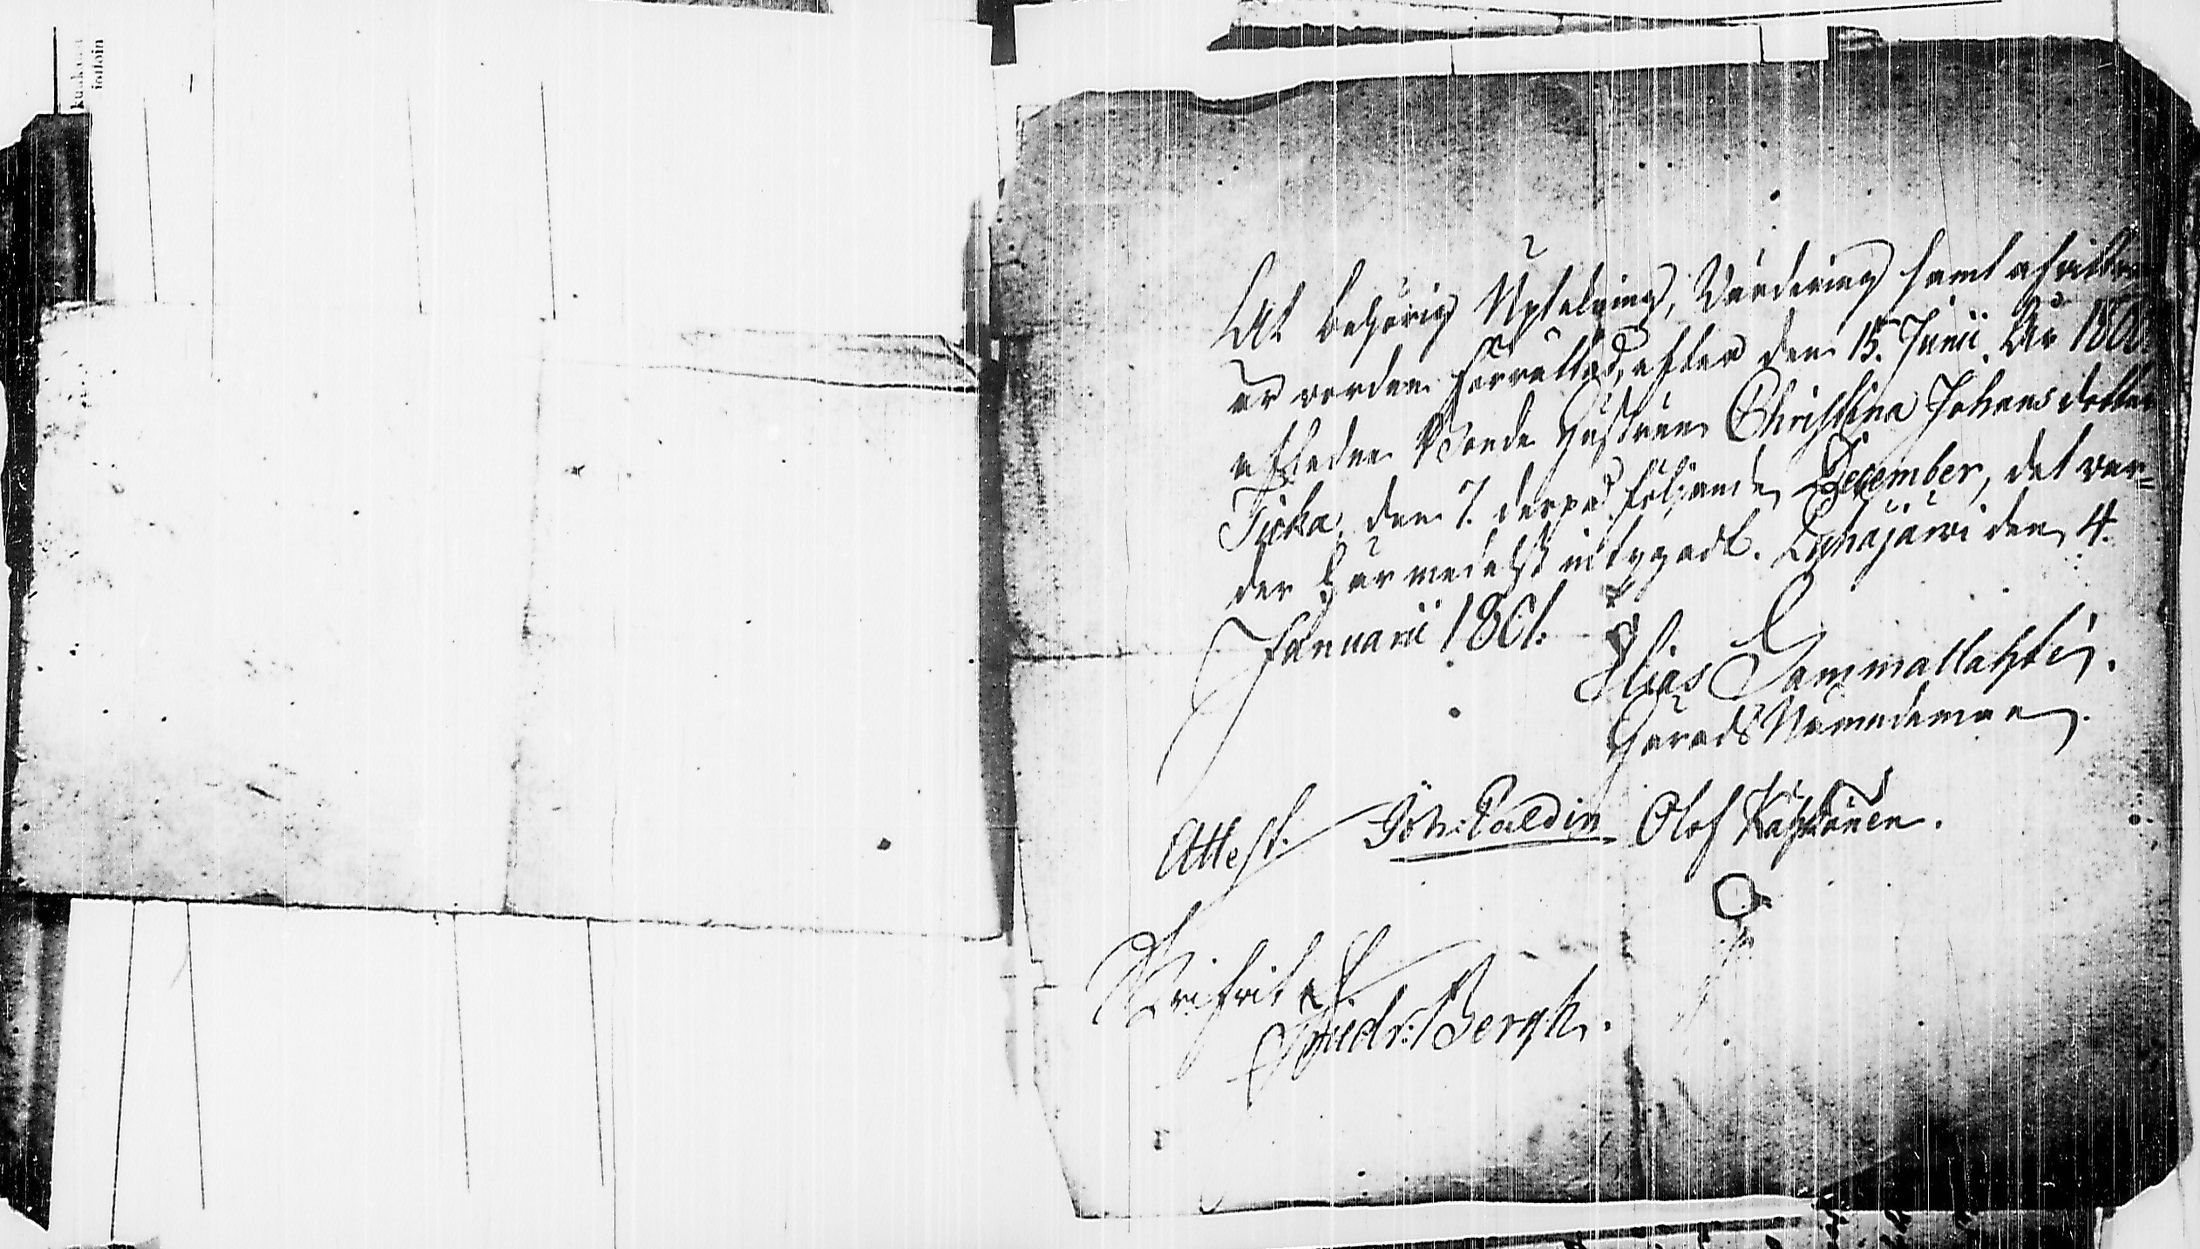 At behörig Uptekning, Värdering samt afvittring
är worden förrättad, efter den 15. Junii År 1800
afledne Bonde Hustrun Christina Johansdotter
Tiska, den 7. derpå följande December, det var=
der Härmedelst intygadt. Lyhäjärvi den 4.
Januarii 1801.
Elias Sammallahti.
Härads Nämndeman.
Attest. Göh: Paldin Olof Käyhkönen.
Fredr: Bergh.